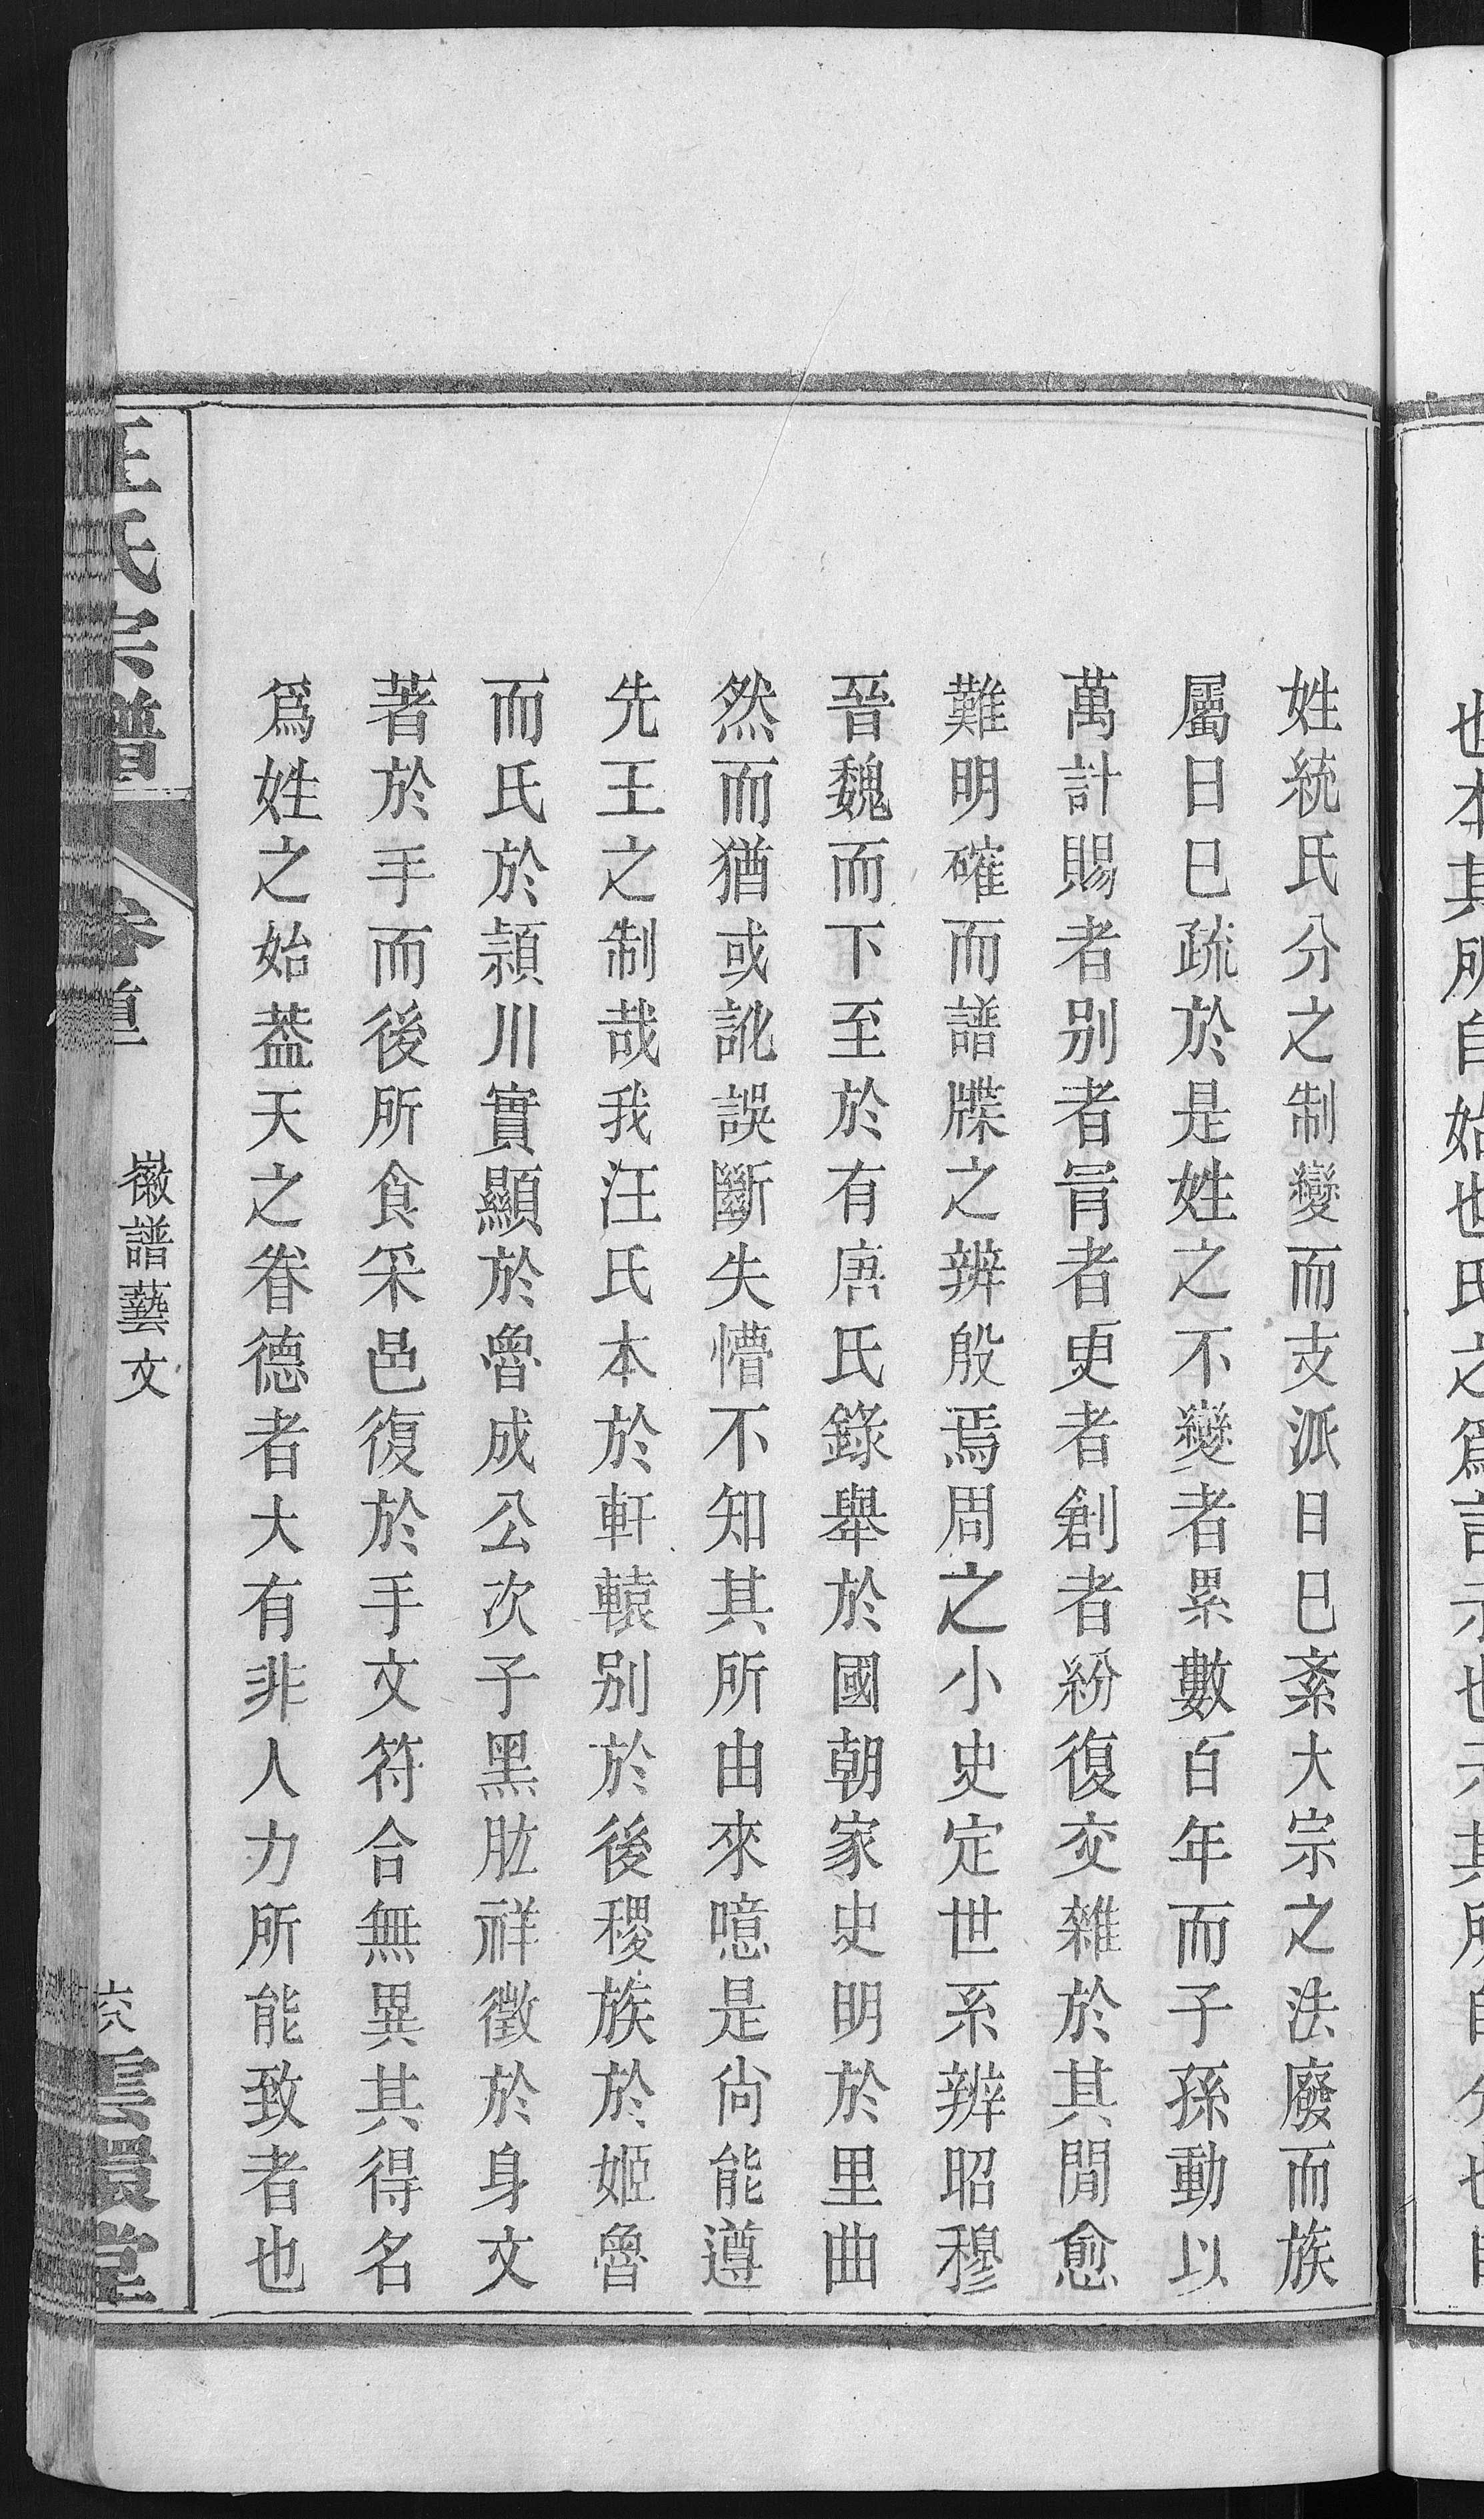 也本其所自始也氏之爲言示也示其所自分也自
姓統氏分之制變而支派日巳紊大宗之法廢而族
屬日巳疏於是姓之不變者累數百年而子孫動以
萬計賜者别者冐者更者創者紛復交雜於其閒愈
難明確而譜牒之辨殷焉周之小史定世系辨昭穆
晉魏而下至於有唐氏錄舉於國朝家史明於里曲
然而猶或訛誤斷失懵不知其所由來噫是尙能遵
先王之制哉我汪氏本於軒轅别於後稷族於姬魯
而氏於頴川實顯於魯成公次子黑肱祥徵於身文
著於手而後所食采邑復於手文符合無異其得名
爲姓之始葢天之眷德者大有非人力所能致者也
汪氏宗譜
卷首
徽譜藝文
六
雲環堂